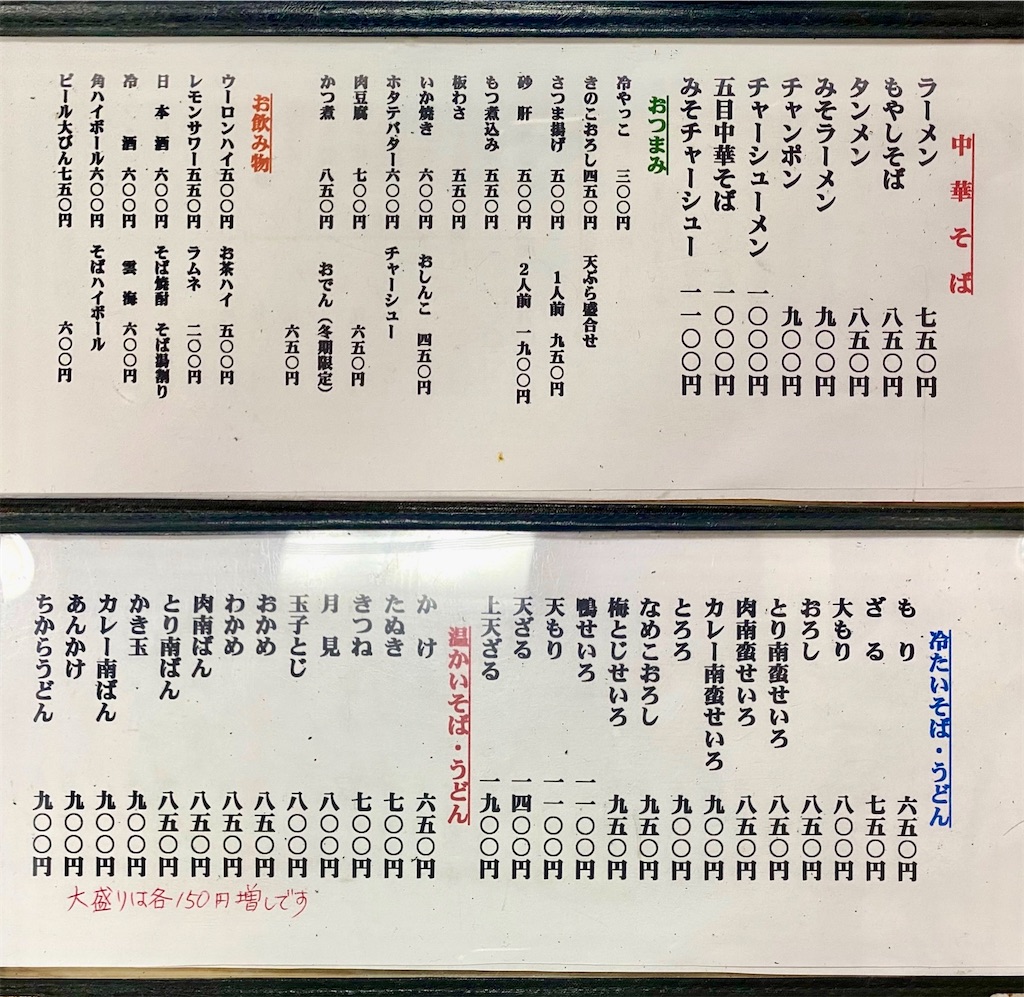 中華そば
ラーメン 七五〇円
もやしそば 八五〇円
タンメン 八五〇円
みそラーメン 九〇〇円
チャンポン 九〇〇円
チャーシューメン 一〇〇〇円
五目中華そば 一〇〇〇円
みそチャーシュー 一一〇〇円
おつまみ
冷やっこ 三〇〇円
きのこおろし四五〇円 天ぷら盛合せ
さつま揚げ 五〇〇円 1人前 九五〇円
砂肝 五〇〇円 2人前 一九〇〇円
もつ煮込み 五五〇円
板わさ 五五〇円
いか焼き 六〇〇円 おしんこ 四五〇円
ホタテバター六〇〇円 チャーシュー
肉豆腐 七〇〇円 六五〇円
かつ煮 八五〇円 おでん(冬期限定)
六五〇円
お飲み物
ウーロンハイ五〇〇円 お茶ハイ 五〇〇円
レモンサワー五五〇円 ラムネ 二〇〇円
日本酒 六〇〇円 そば焼酎 そば湯割り
冷酒 六〇〇円 雲海 六〇〇円
角ハイボール六〇〇円 そばハイボール
ビール大びん七五〇円 六〇〇円
冷たいそば・うどん
もり 六五〇円
ざる 七五〇円
大もり 八〇〇円
おろし 八五〇円
とり南蛮せいろ 八五〇円
肉南蛮せいろ 八五〇円
カレー南蛮せいろ 九〇〇円
とろろ 九〇〇円
なめこおろし 九五〇円
梅とじせいろ 九五〇円
鴨せいろ 一一〇〇円
天もり 一一〇〇円
天ざる 一四〇〇円
上天ざる 一九〇〇円
温かいそば・うどん
かけ 六五〇円
たぬき 七〇〇円
きつね 七〇〇円
月見 八〇〇円
玉子とじ 八〇〇円
おかめ 八五〇円
わかめ 八五〇円
肉南ばん 八五〇円
とり南ばん 八五〇円
かき玉 九〇〇円
カレー南ばん 九〇〇円
あんかけ 九〇〇円
ちからうどん 九〇〇円
大盛りは各150円増しです